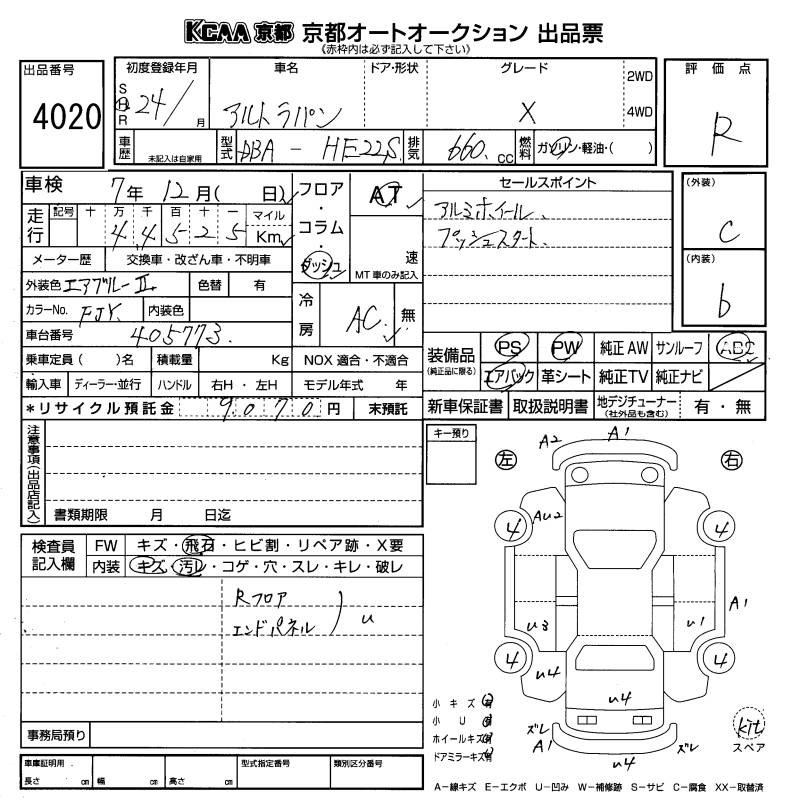 KCAA 京都 京都オートオークション 出品票
(赤枠内は必ず記入して下さい)
出品番号
4020
初度登録年月 車名 ドア・形状 グレード
S
H
R
24/ 月 アルトラパン X 2WD
4WD
車歴 未記入は自家用 型式 DBA - HE22S 排気 660. cc 燃料 ガソリン・軽油・( )
評価点
R
車検 7年 12月( 日)
走行 記号 十 万 千 百 十 一 マイル
4 4 5 2 5 Km
メーター歴 交換車・改ざん車・不明車
外装色 エアブルーⅡ 色替 有
カラーNo. FJY 内装色
車台番号 405773
乗車定員( )名 積載量 Kg NOX 適合・不適合
輸入車 ディーラー・並行 ハンドル 右H・左H モデル年式 年
*リサイクル預託金 9070 円 末預託
フロア・コラム・ダッシュ
AT
速
MT車のみ記入
冷房 AC 無
セールスポイント
アルミホイール、
プッシュスタート、
(外装)
C
(内装)
b
装備品
(純正品に限る)
PS PW 純正AW サンルーフ ABS
エアバック 革シート 純正TV 純正ナビ
新車保証書 取扱説明書 地デジチューナー
(社外品も含む) 有・無
注意事項(出品店記入)
書類期限 月 日迄
検査員記入欄
FW キズ・飛石・ヒビ割・リペア跡・X要
内装 キズ・汚レ・コゲ・穴・スレ・キレ・破レ
Rフロア
エンドパネル ) u
事務局預り
車庫証明用 長さ cm 幅 cm 高さ cm 型式指定番号 類別区分番号
キー預り
A2 A1
左 右
4 AU2 4
u3 u1 A1
4 u4 4
u4
小キズ 有
小U 有
ホイールキズ 有
ドアミラーキズ 有
ズレ
A1 u4 ズレ
kit
スペア
A-線キズ E-エクボ U-凹み W-補修跡 S-サビ C-腐食 XX-取替済